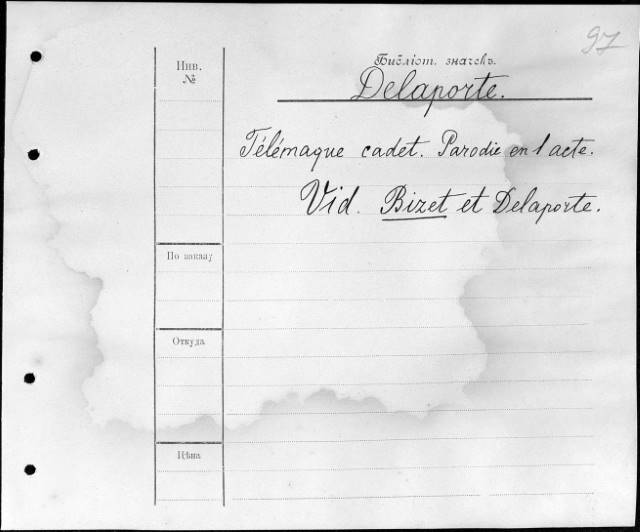 97
Библіот. значекъ.
Инв.
№
Delaporte.
Télémaque cadet. Parodie en 1 acte.
Vid. Bizet et Delaporte.
По заказу
Откуда
Цѣна